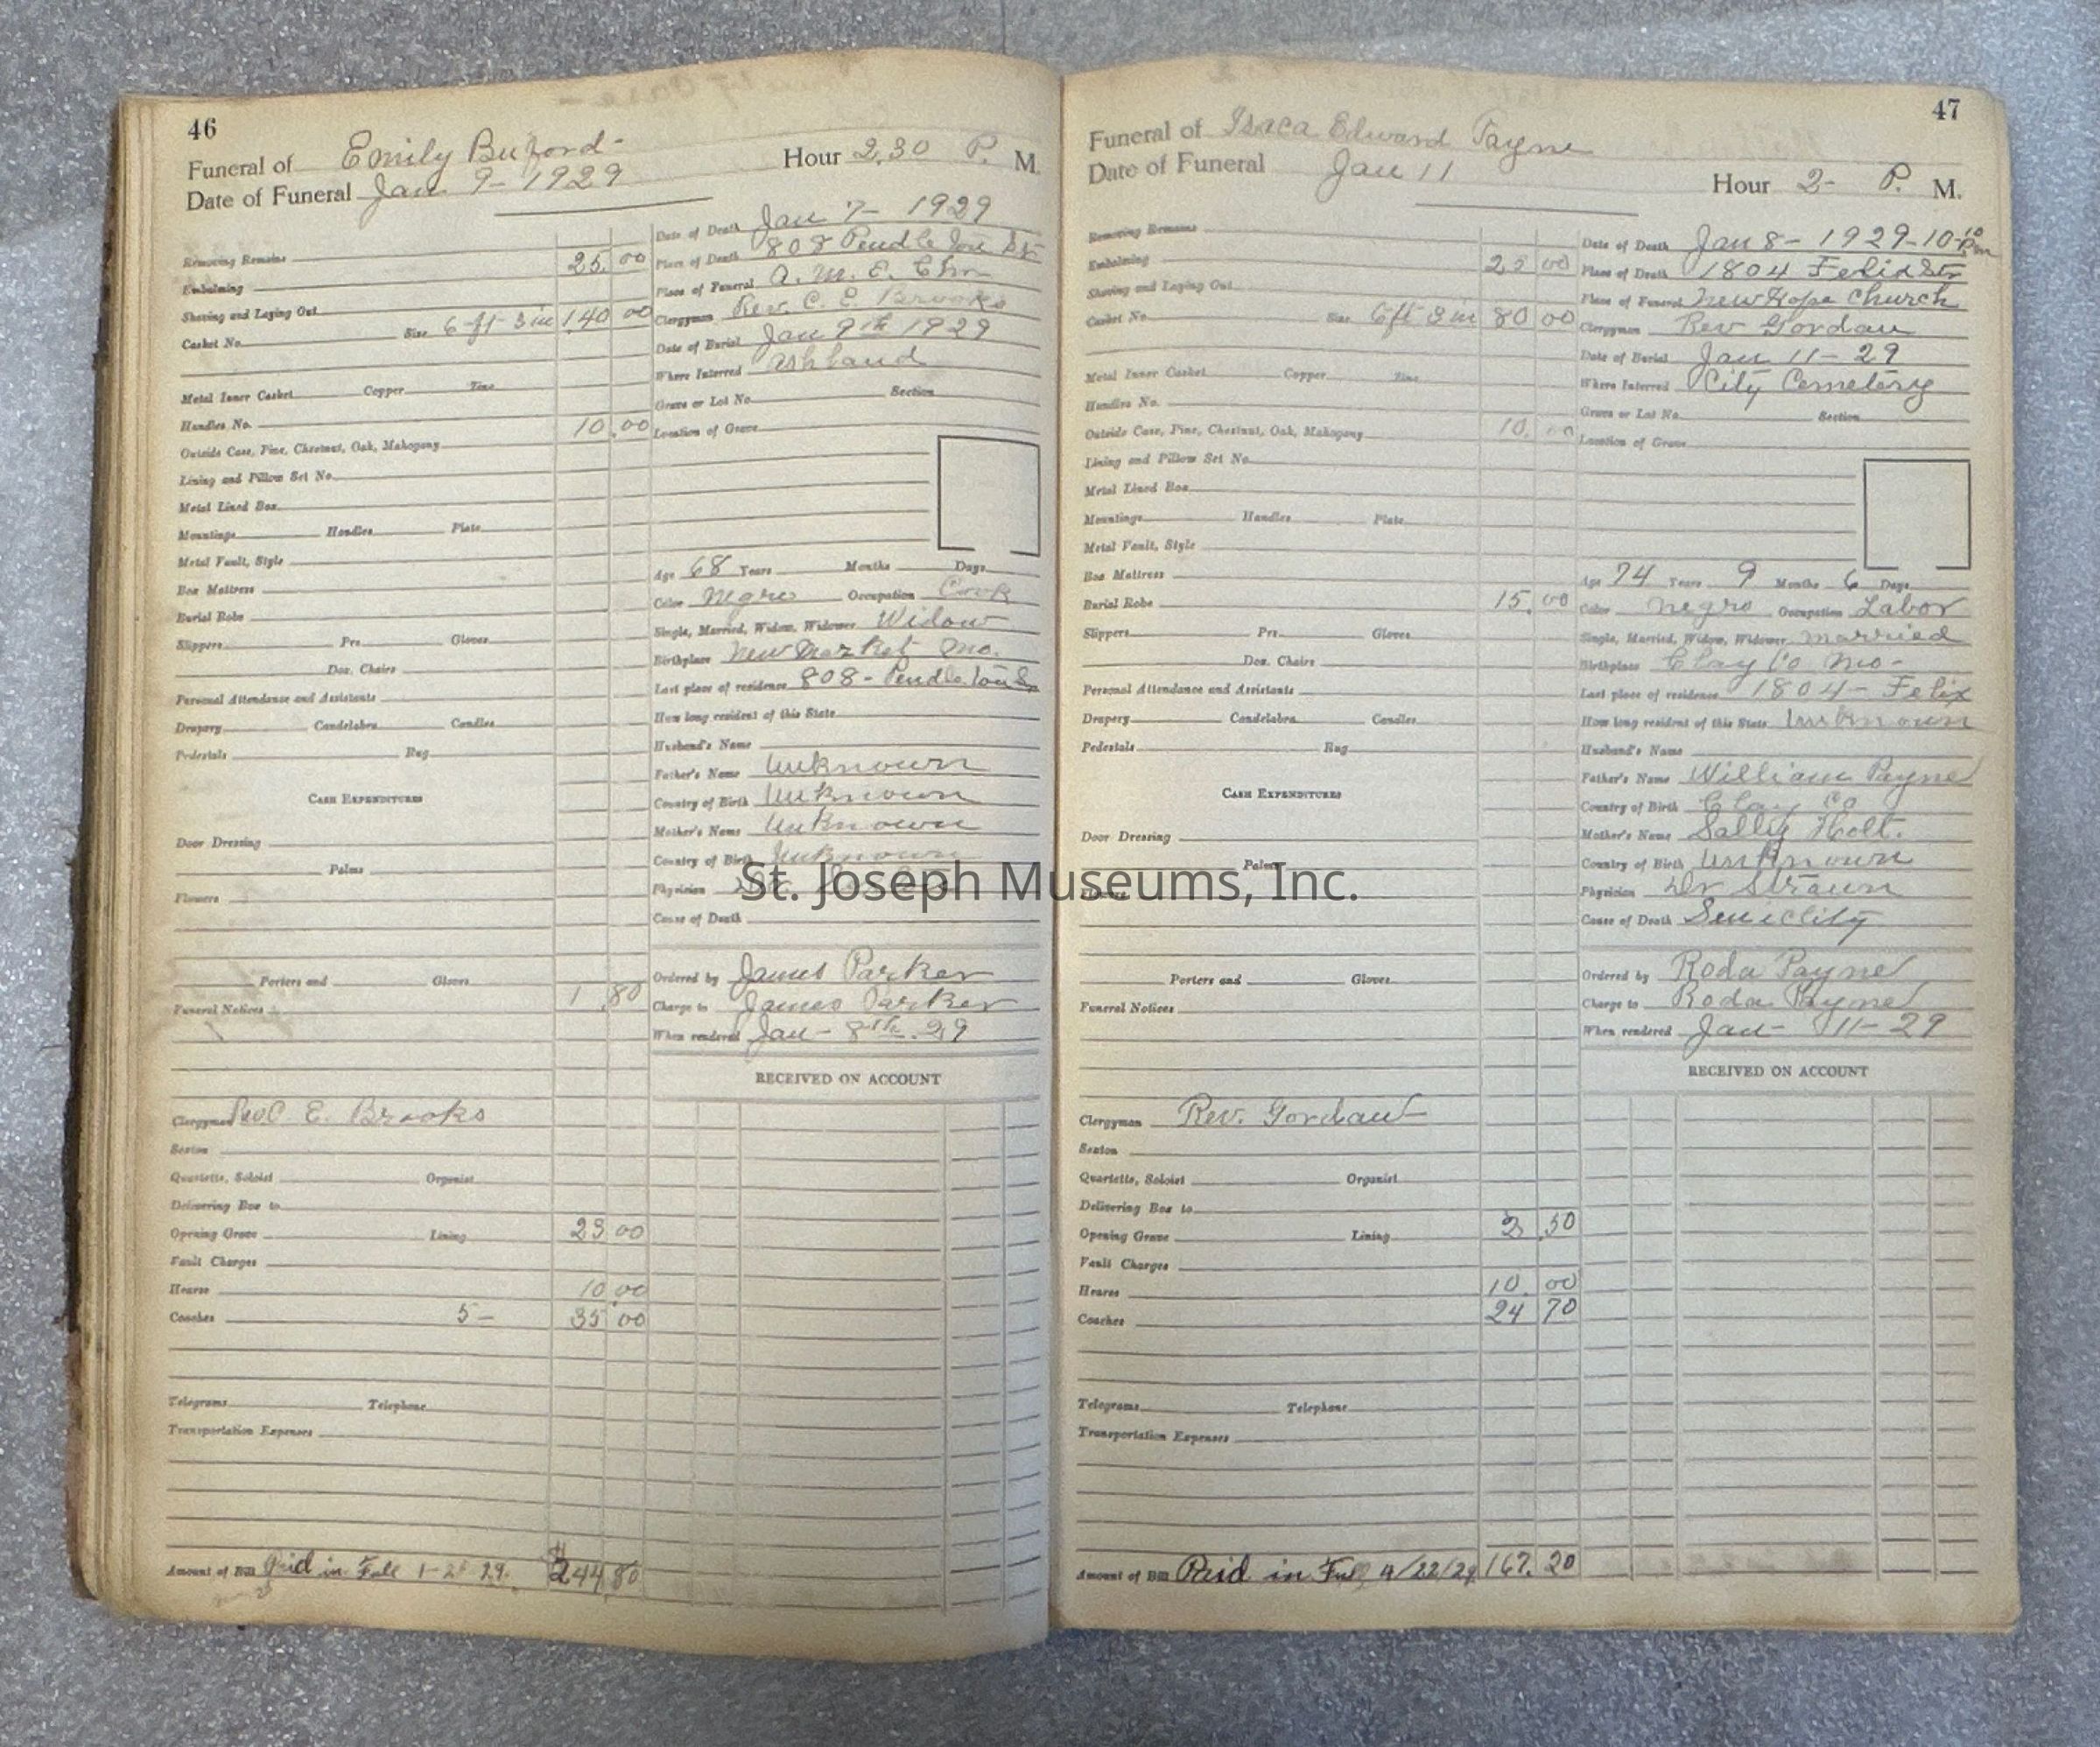 46
Funeral of Emily Buford- Hour 2.30 P. M.
Date of Funeral Jan 9-1929
Removing Remains
Embalming 25.00
Shaving and Laying Out
Casket No. Size 6-ft-3in 140 00
Metal Inner Casket Copper Zinc
Handles No.
Outside Case, Pine, Chestnut, Oak, Mahogany 10.00
Lining and Pillow Set No.
Metal Lined Box
Mountings Handles Plate
Metal Vault, Style
Box Mattress
Burial Robe
Slippers Prs. Gloves
Doz. Chairs
Personal Attendance and Assistants
Drapery Candelabra Candles
Pedestals Rug
CASH EXPENDITURES
Door Dressing
Palms
Flowers
Porters and Gloves
Funeral Notices 1.80
Clergyman C. E. Brooks
Sexton
Quartette, Soloist Organist
Delivering Box to
Opening Grave Lining 23 00
Vault Charges
Hearse 10.00
Coaches 5- 35 00
Telegrams Telephone
Transportation Expenses
Amount of Bill Paid in Full $244 80
Date of Death Jan 7- 1929
Place of Death 808 Pendleton Str
Place of Funeral A. M. E. Chr
Clergyman Rev. C. E. Brooks
Date of Burial Jan 9th 1929
Where Interred Ashland
Grave or Lot No. Section
Location of Grave
Age 68 Years Months Days
Color Negro Occupation Cook
Single, Married, Widow, Widower Widow
Birthplace New Market Mo.
Last place of residence 808- Pendleton
How long resident of this State
Husband's Name
Father's Name Unknown
Country of Birth Unknown
Mother's Name Unknown
Country of Birth Unknown
Physician
Cause of Death
Ordered by James Parker
Charge to James Parker
When rendered Jan- 8th. 29
RECEIVED ON ACCOUNT
47
Funeral of Isaca Edward Payne
Date of Funeral Jan 11 Hour 2- P. M.
Removing Remains
Embalming 25 00
Shaving and Laying Out
Casket No. Size 6ft 3in 80 00
Metal Inner Casket Copper Zinc
Handles No.
Outside Case, Pine, Chestnut, Oak, Mahogany 10.00
Lining and Pillow Set No.
Metal Lined Box
Mountings Handles Plate
Metal Vault, Style
Box Mattress
Burial Robe 15.00
Slippers Prs. Gloves
Doz. Chairs
Personal Attendance and Assistants
Drapery Candelabra Candles
Pedestals Rug
CASH EXPENDITURES
Door Dressing
Palms
Porters and Gloves
Funeral Notices
Clergyman Rev. Gordau
Sexton
Quartette, Soloist Organist
Delivering Box to
Opening Grave Lining 2.50
Vault Charges
Hearse 10.00
Coaches 24 70
Telegrams Telephone
Transportation Expenses
Amount of Bill Paid in Full 4/22/29 167.20
Date of Death Jan 8- 1929-10-10 Pm
Place of Death 1804 Felix Str
Place of Funeral New Hope Church
Clergyman Rev Gordau
Date of Burial Jan 11-29
Where Interred City Cemetery
Grave or Lot No. Section
Location of Grave
Age 74 Years 9 Months 6 Days
Color negro Occupation Labor
Single, Married, Widow, Widower married
Birthplace Clay Co Mo-
Last place of residence 1804- Felix
How long resident of this State Unknown
Husband's Name
Father's Name William Payne
Country of Birth Clay Co
Mother's Name Sally Holt.
Country of Birth Unknown
Physician Dr Straun
Cause of Death Seniclity
Ordered by Roda Payne
Charge to Roda Payne
When rendered Jan- 11-29
RECEIVED ON ACCOUNT
St. Joseph Museums, Inc.